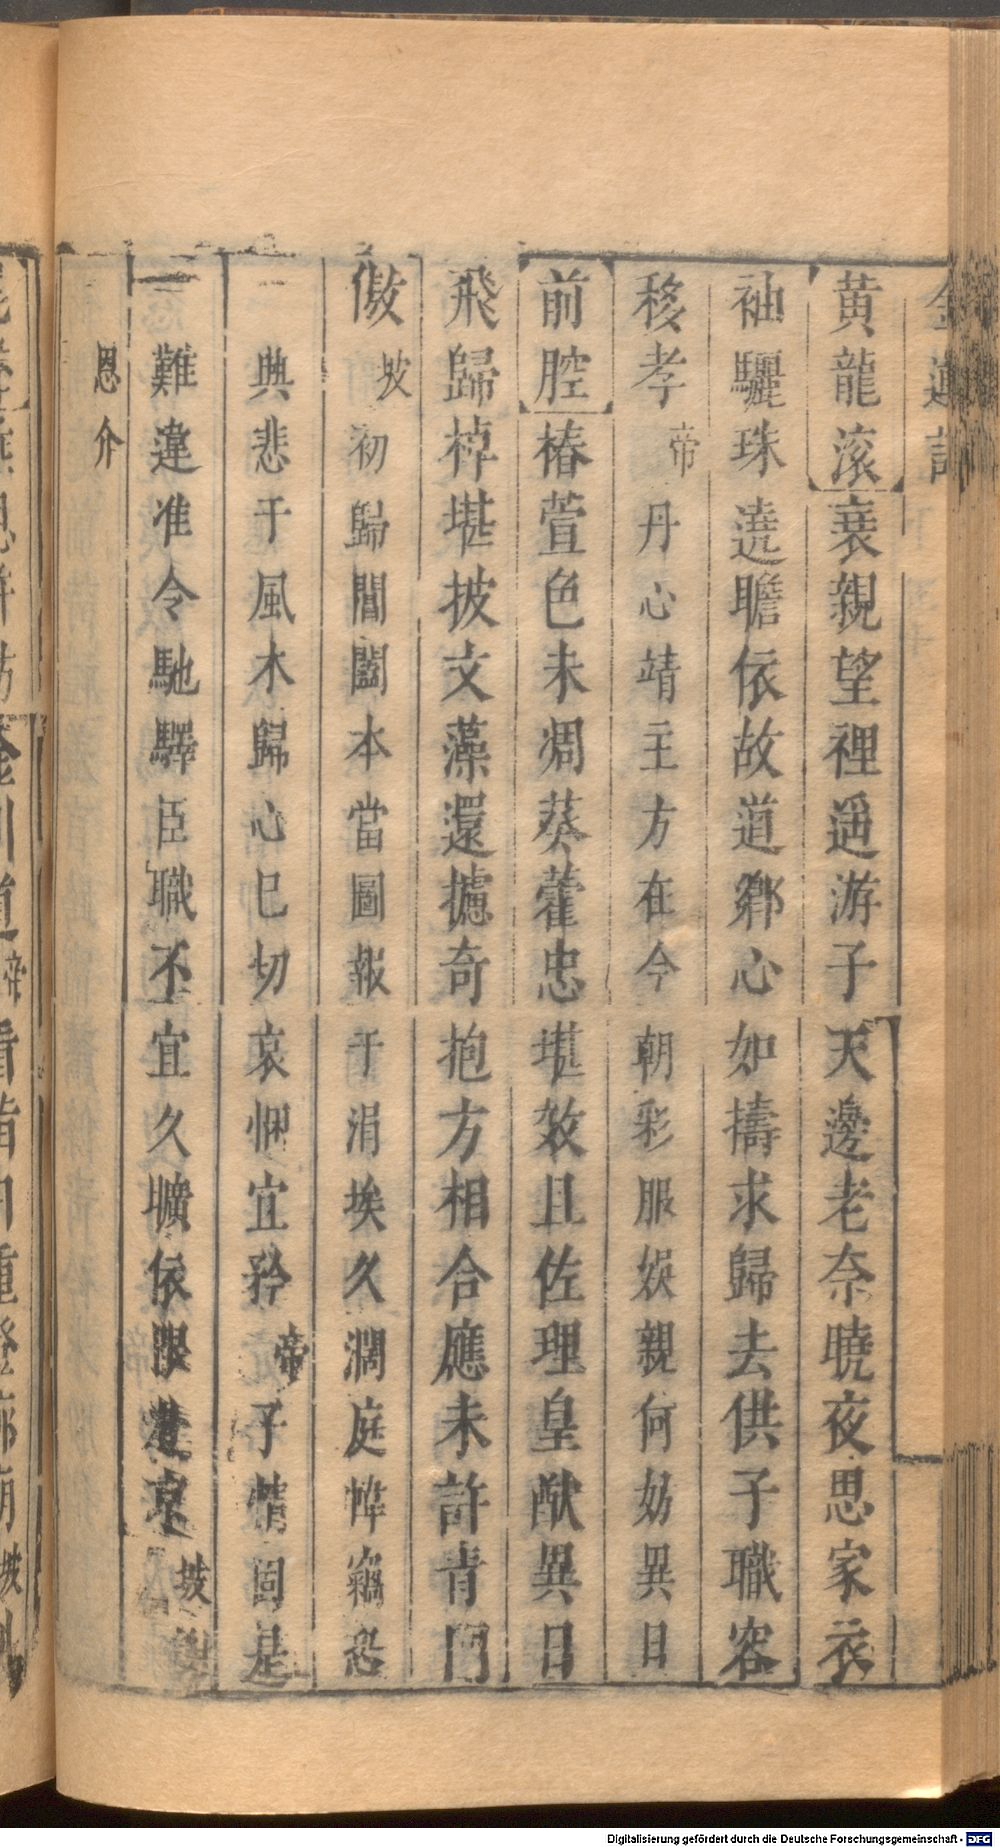 金蓮記
黄龍滚衰親望裡逥游子天邊老奈曉夜思家衣
袖驪珠遶瞻依故道鄉心如擣求歸去供子職容
移孝帝丹心靖主方在今朝彩服娛親何妨異日
前腔椿萱色未凋葵藿忠堪效且佐理皇猷異日
飛歸棹堪披文藻還攄奇抱方相合應未許青門
傲坡初歸閶闔本當圖報于涓埃久濶庭幃竊恐
典悲于風木歸心已切哀悃宜矜帝子情固是
難違准令馳驛臣職不宜久曠依限還京坡謝
恩介
Digitalisierung gefördert durch die Deutsche Forschungsgemeinschaft - DFG